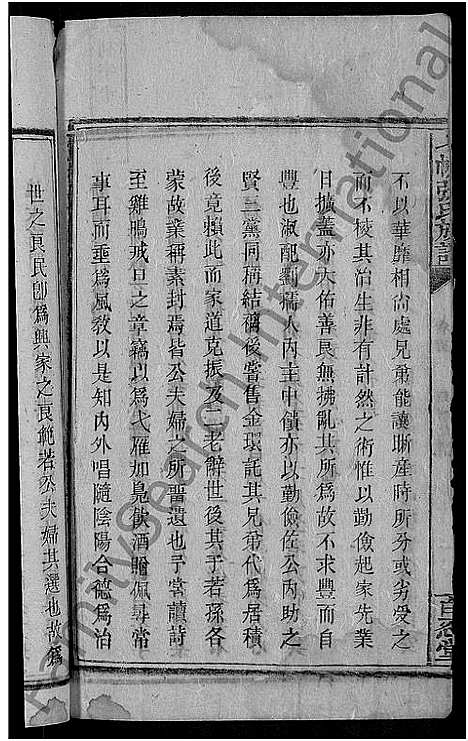 不以華靡相尙處兄弟能讓斯産時所分或劣受之
而不校其治生非有計然之術惟以勤儉起家先業
日擴蓋亦天佑善良無拂亂其所爲故不求豐而自
豐也淑配劉孺人內主中饋亦以勤儉佐公內助之
賢三黨同稱結褵後嘗售金環託其兄弟代爲居積
後竟賴此而家道克振及二老辭世後其子若孫各
蒙故業稱素封焉皆公夫婦之所畱遺也予嘗讀詩
至雞鳴戒旦之章竊以爲弋雁加鳧飲酒贈佩尋常
事耳而垂爲風敎以是知內外唱隨陰陽合德爲治
世之良民卽爲興家之良範若公夫婦其選也故爲
張氏族譜
百忍堂
FamilySearch International